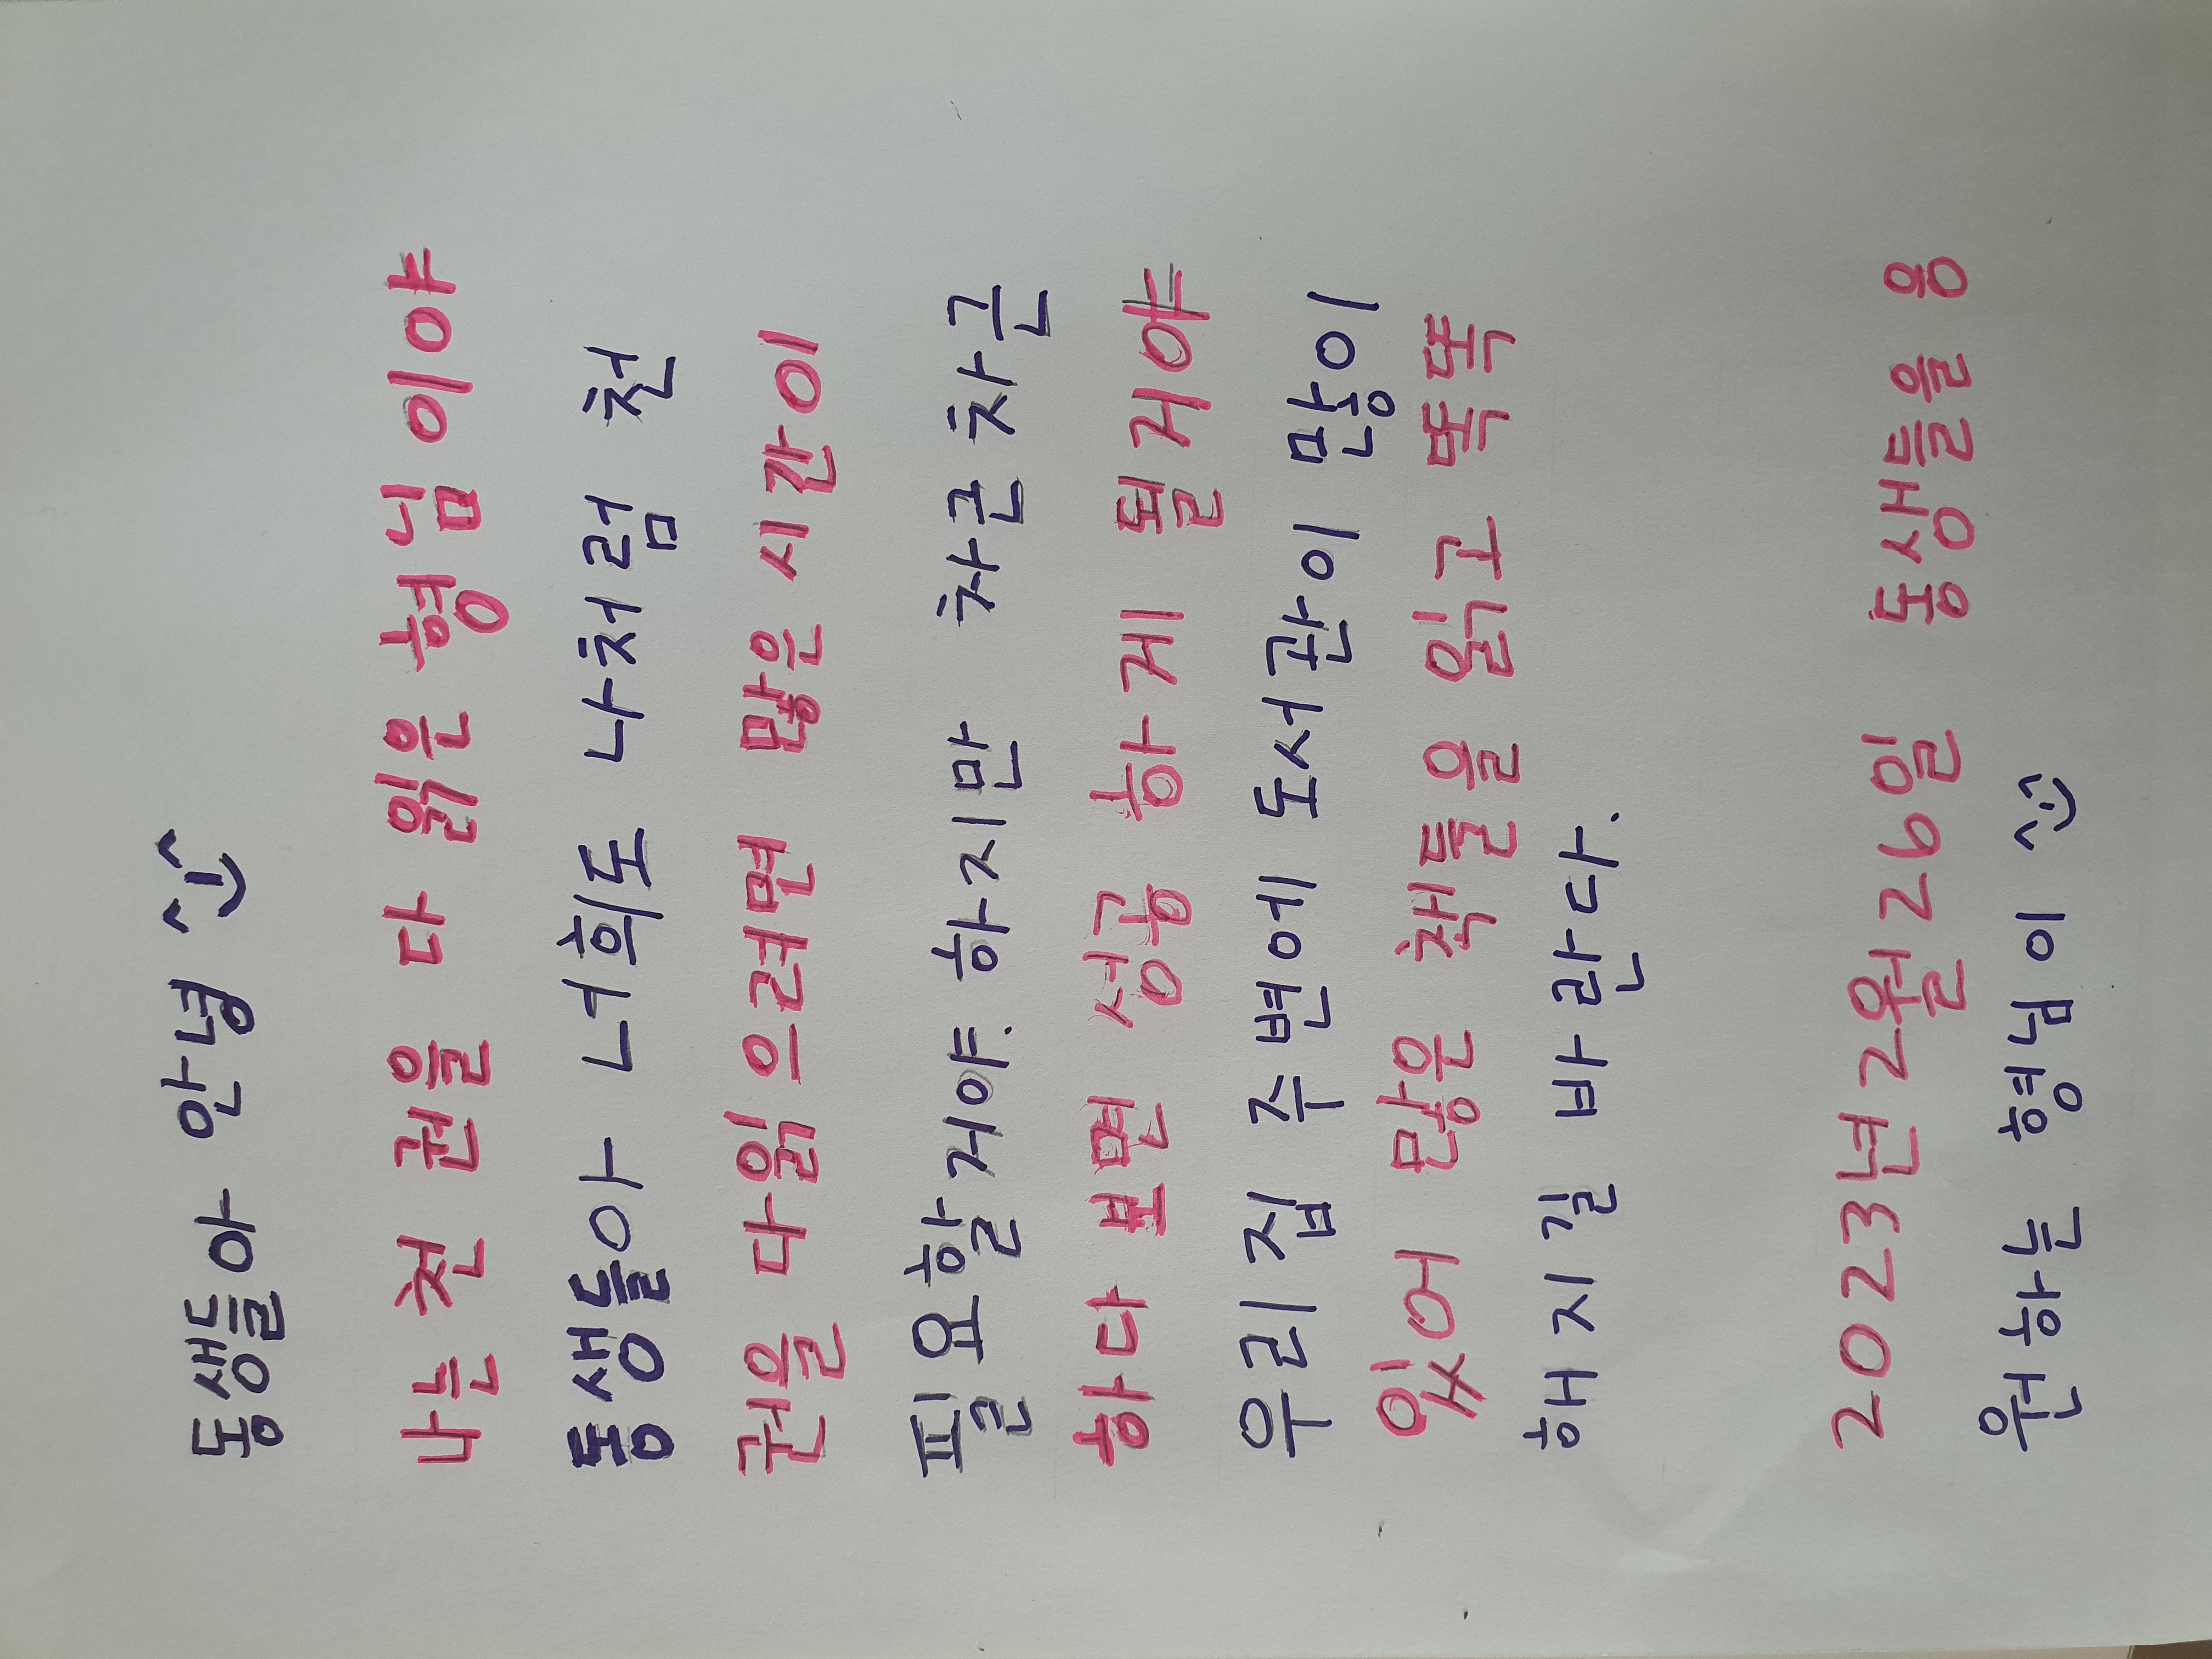 동생들아 안녕
나는 천 권을 다 읽은 형님이야
동생들아 너희도 나처럼 천
권을 다읽으려면 많은 시간이
필요할거야. 하지만 차근차근
하다 보면 성공 하게 될거야
우리집 주변에 도서관이 많이
있어 많은 책들을 읽고 똑똑
해지길 바란다.
2023년2월26일 동생들을 응
원하는 형님이